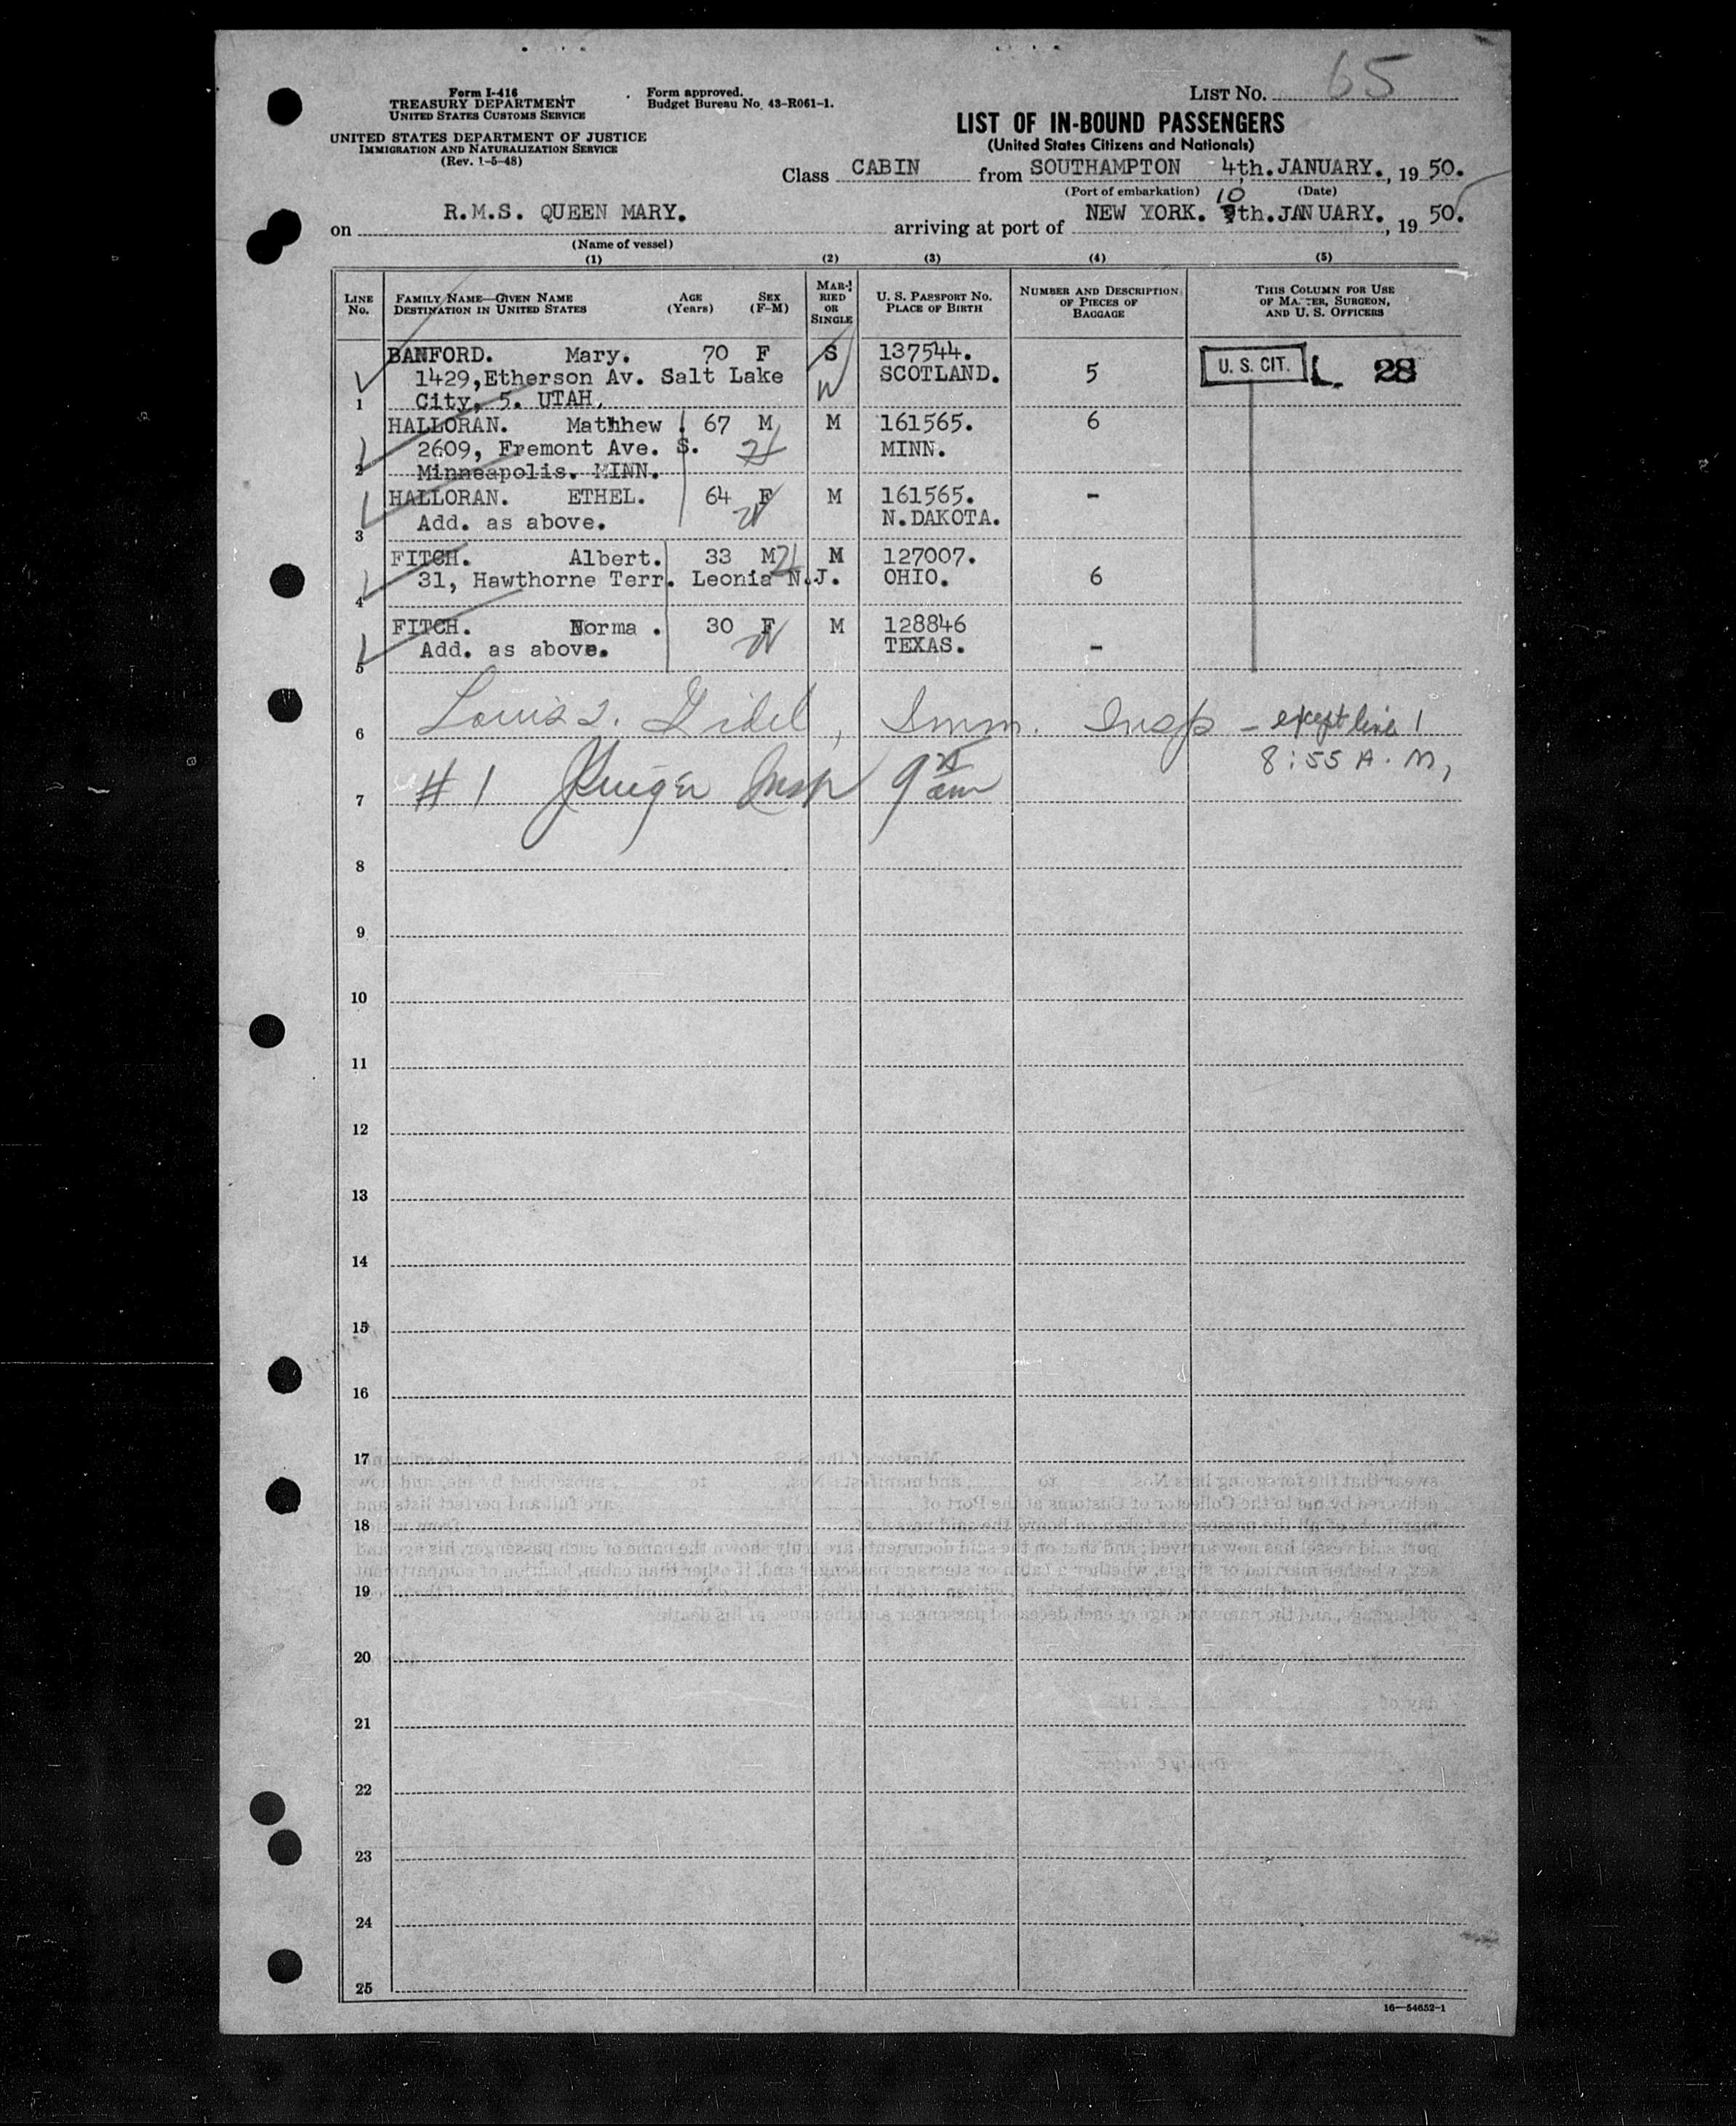 Form I-416
TREASURY DEPARTMENT
UNITED STATES CUSTOMS SERVICE
UNITED STATES DEPARTMENT OF JUSTICE
IMMIGRATION AND NATURALIZATION SERVICE
(Rev. 1-5-48)
Form approved.
Budget Bureau No. 43-R061-1.
LIST NO. 65
LIST OF IN-BOUND PASSENGERS
(United States Citizens and Nationals)
Class CABIN from SOUTHAMPTON 4th. JANUARY., 19 50.
(Port of embarkation) (Date)
on R.M.S. QUEEN MARY. arriving at port of NEW YORK. 10 th. JANUARY., 19 50.
(Name of vessel)
(1) (2) (3) (4) (5)
LINE NO. FAMILY NAME—GIVEN NAME DESTINATION IN UNITED STATES AGE (Years) SEX (F-M) MARRIED OR SINGLE U. S. PASSPORT NO. PLACE OF BIRTH NUMBER AND DESCRIPTION OF PIECES OF BAGGAGE THIS COLUMN FOR USE OF MASTER, SURGEON, AND U. S. OFFICERS
BANFORD. Mary. 70 F S 137544. U. S. CIT. L 28
1429,Etherson Av. Salt Lake W SCOTLAND. 5
1 City, 5. UTAH.
HALLORAN. Mathhew . 67 M M 161565. 6
2609, Fremont Ave. S. MINN.
2 Minneapolis. MINN.
HALLORAN. ETHEL. 64 F M 161565. -
Add. as above. N.DAKOTA.
3
FITCH. Albert. 33 M M 127007.
31, Hawthorne Terr. Leonia N.J. OHIO. 6
4
FITCH. Norma . 30 F M 128846
Add. as above. TEXAS. -
5
6 Louis Imm. Insp - except line 1
8:55 A.M,
7 #1 Insp 9 am
8
9
10
11
12
13
14
15
16
17
18
19
20
21
22
23
24
25
16—54652-1